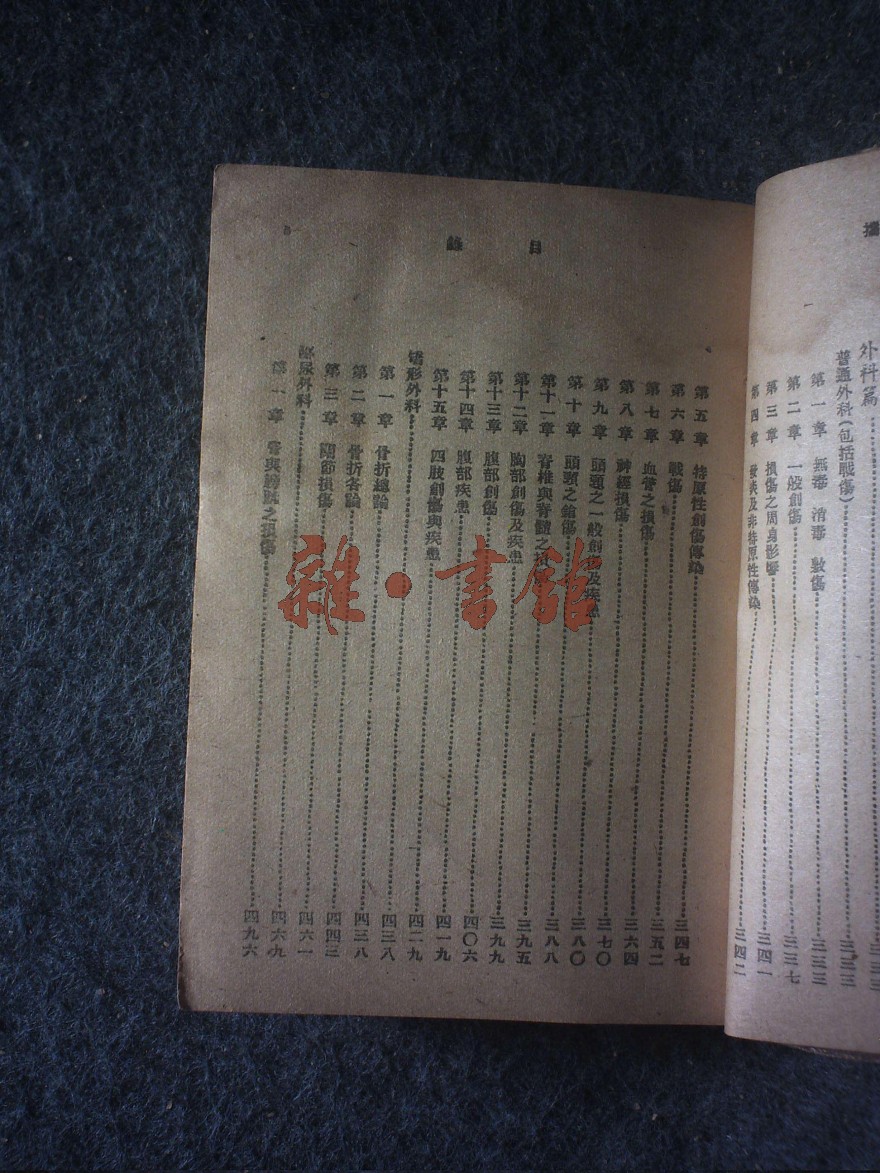 外科篇……三三三
普通外科(包括戰傷)……三三三
第一章 無毒 消毒 敷傷……三三三
第二章 一般創傷……三三七
第三章 損傷之周身影響……三四一
第四章 發炎及非特原性傳染……三四二
目錄
第五章 特原性創傷傳染……三四七
第六章 戰傷……三五二
第七章 血管之損傷……三六四
第八章 神經損傷……三七〇
第九章 頭頸之一般創傷及疾患……三八〇
第十章 頭頸之鎗傷……三八八
第十一章 脊椎與脊髓之損傷……三九五
第十二章 胸部創傷及疾患……三九九
第十三章 腹部創傷……四〇六
第十四章 腹部疾患……四一九
第十五章 四肢創傷與疾患……四二九
矯形外科……四三八
第一章 骨折總論……四三八
第二章 骨折各論……四四三
第三章 關節損傷……四六一
泌尿外科……四六九
第一章 腎與膀胱之損傷……四九六
雜·書館